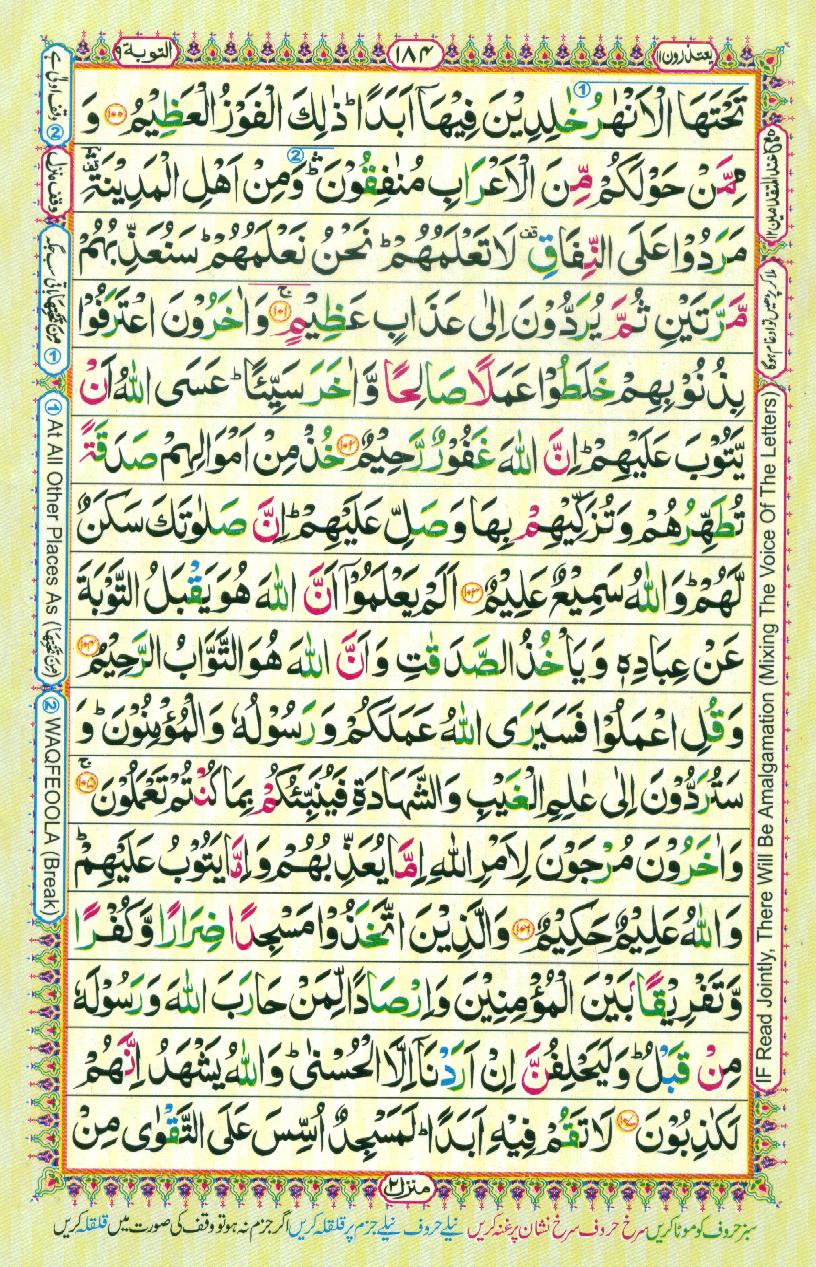 یعتذرون ۱۱
۱۸۴
التوبة ۹
تَحْتَهَا الْاَنْهٰرُ خٰلِدِيْنَ فِيْهَاۤ اَبَدًا ؕ ذٰلِكَ الْفَوْزُ الْعَظِيْمُ ۝۱۰۰ وَ
مِمَّنْ حَوْلَكُمْ مِّنَ الْاَعْرَابِ مُنٰفِقُوْنَ ۛؕ وَمِنْ اَهْلِ الْمَدِيْنَةِ ۛ
مَرَدُوْا عَلَى النِّفَاقِ ۫ لَا تَعْلَمُهُمْ ؕ نَحْنُ نَعْلَمُهُمْ ؕ سَنُعَذِّبُهُمْ
مَّرَّتَيْنِ ثُمَّ يُرَدُّوْنَ اِلٰى عَذَابٍ عَظِيْمٍ ۝۱۰۱ۚ وَاٰخَرُوْنَ اعْتَرَفُوْا
بِذُنُوْبِهِمْ خَلَطُوْا عَمَلًا صَالِحًا وَّاٰخَرَ سَيِّئًا ؕ عَسَى اللّٰهُ اَنْ
يَّتُوْبَ عَلَيْهِمْ ؕ اِنَّ اللّٰهَ غَفُوْرٌ رَّحِيْمٌ ۝۱۰۲ خُذْ مِنْ اَمْوَالِهِمْ صَدَقَةً
تُطَهِّرُهُمْ وَتُزَكِّيْهِمْ بِهَا وَصَلِّ عَلَيْهِمْ ؕ اِنَّ صَلٰوتَكَ سَكَنٌ
لَّهُمْ ؕ وَاللّٰهُ سَمِيْعٌ عَلِيْمٌ ۝۱۰۳ اَلَمْ يَعْلَمُوْۤا اَنَّ اللّٰهَ هُوَ يَقْبَلُ التَّوْبَةَ
عَنْ عِبَادِهٖ وَيَاْخُذُ الصَّدَقٰتِ وَاَنَّ اللّٰهَ هُوَ التَّوَّابُ الرَّحِيْمُ ۝۱۰۴
وَقُلِ اعْمَلُوْا فَسَيَرَى اللّٰهُ عَمَلَكُمْ وَرَسُوْلُهٗ وَالْمُؤْمِنُوْنَ ؕ وَ
سَتُرَدُّوْنَ اِلٰى عٰلِمِ الْغَيْبِ وَالشَّهَادَةِ فَيُنَبِّئُكُمْ بِمَا كُنْتُمْ تَعْمَلُوْنَ ۝۱۰۵ۚ
وَاٰخَرُوْنَ مُرْجَوْنَ لِاَمْرِ اللّٰهِ اِمَّا يُعَذِّبُهُمْ وَاِمَّا يَتُوْبُ عَلَيْهِمْ ؕ
وَاللّٰهُ عَلِيْمٌ حَكِيْمٌ ۝۱۰۶ وَالَّذِيْنَ اتَّخَذُوْا مَسْجِدًا ضِرَارًا وَّكُفْرًا
وَّتَفْرِيْقًا ۢ بَيْنَ الْمُؤْمِنِيْنَ وَاِرْصَادًا لِّمَنْ حَارَبَ اللّٰهَ وَرَسُوْلَهٗ
مِنْ قَبْلُ ؕ وَلَيَحْلِفُنَّ اِنْ اَرَدْنَاۤ اِلَّا الْحُسْنٰى ؕ وَاللّٰهُ يَشْهَدُ اِنَّهُمْ
لَكٰذِبُوْنَ ۝۱۰۷ لَا تَقُمْ فِيْهِ اَبَدًا ؕ لَمَسْجِدٌ اُسِّسَ عَلَى التَّقْوٰى مِنْ
منزل ۲
سبز حروف کو موٹا کریں سرخ حروف سرخ نشان پر غنہ کریں نیلے حروف نیلے جزم پر قلقلہ کریں اگر جزم نہ ہو تو وقف کی صورت میں قلقلہ کریں
② وقف اولیٰ ہے
وقف منزل
① مِنْ تَحْتِهَا باقی سب جگہ
① At All Other Places As (مِنْ تَحْتِهَا)
② WAQFEOOLA (Break)
معانقة عند المتقدمين ۱۲
ملا کر پڑھیں تو ادغام ہوگا
IF Read Jointly, There Will Be Amalgamation (Mixing The Voice Of The Letters)